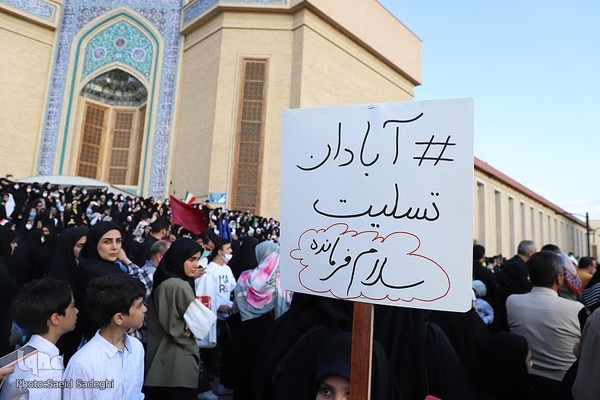 #آبادان
تسلیت
سلام فرمانده
Photo:Saeid Sadeghi